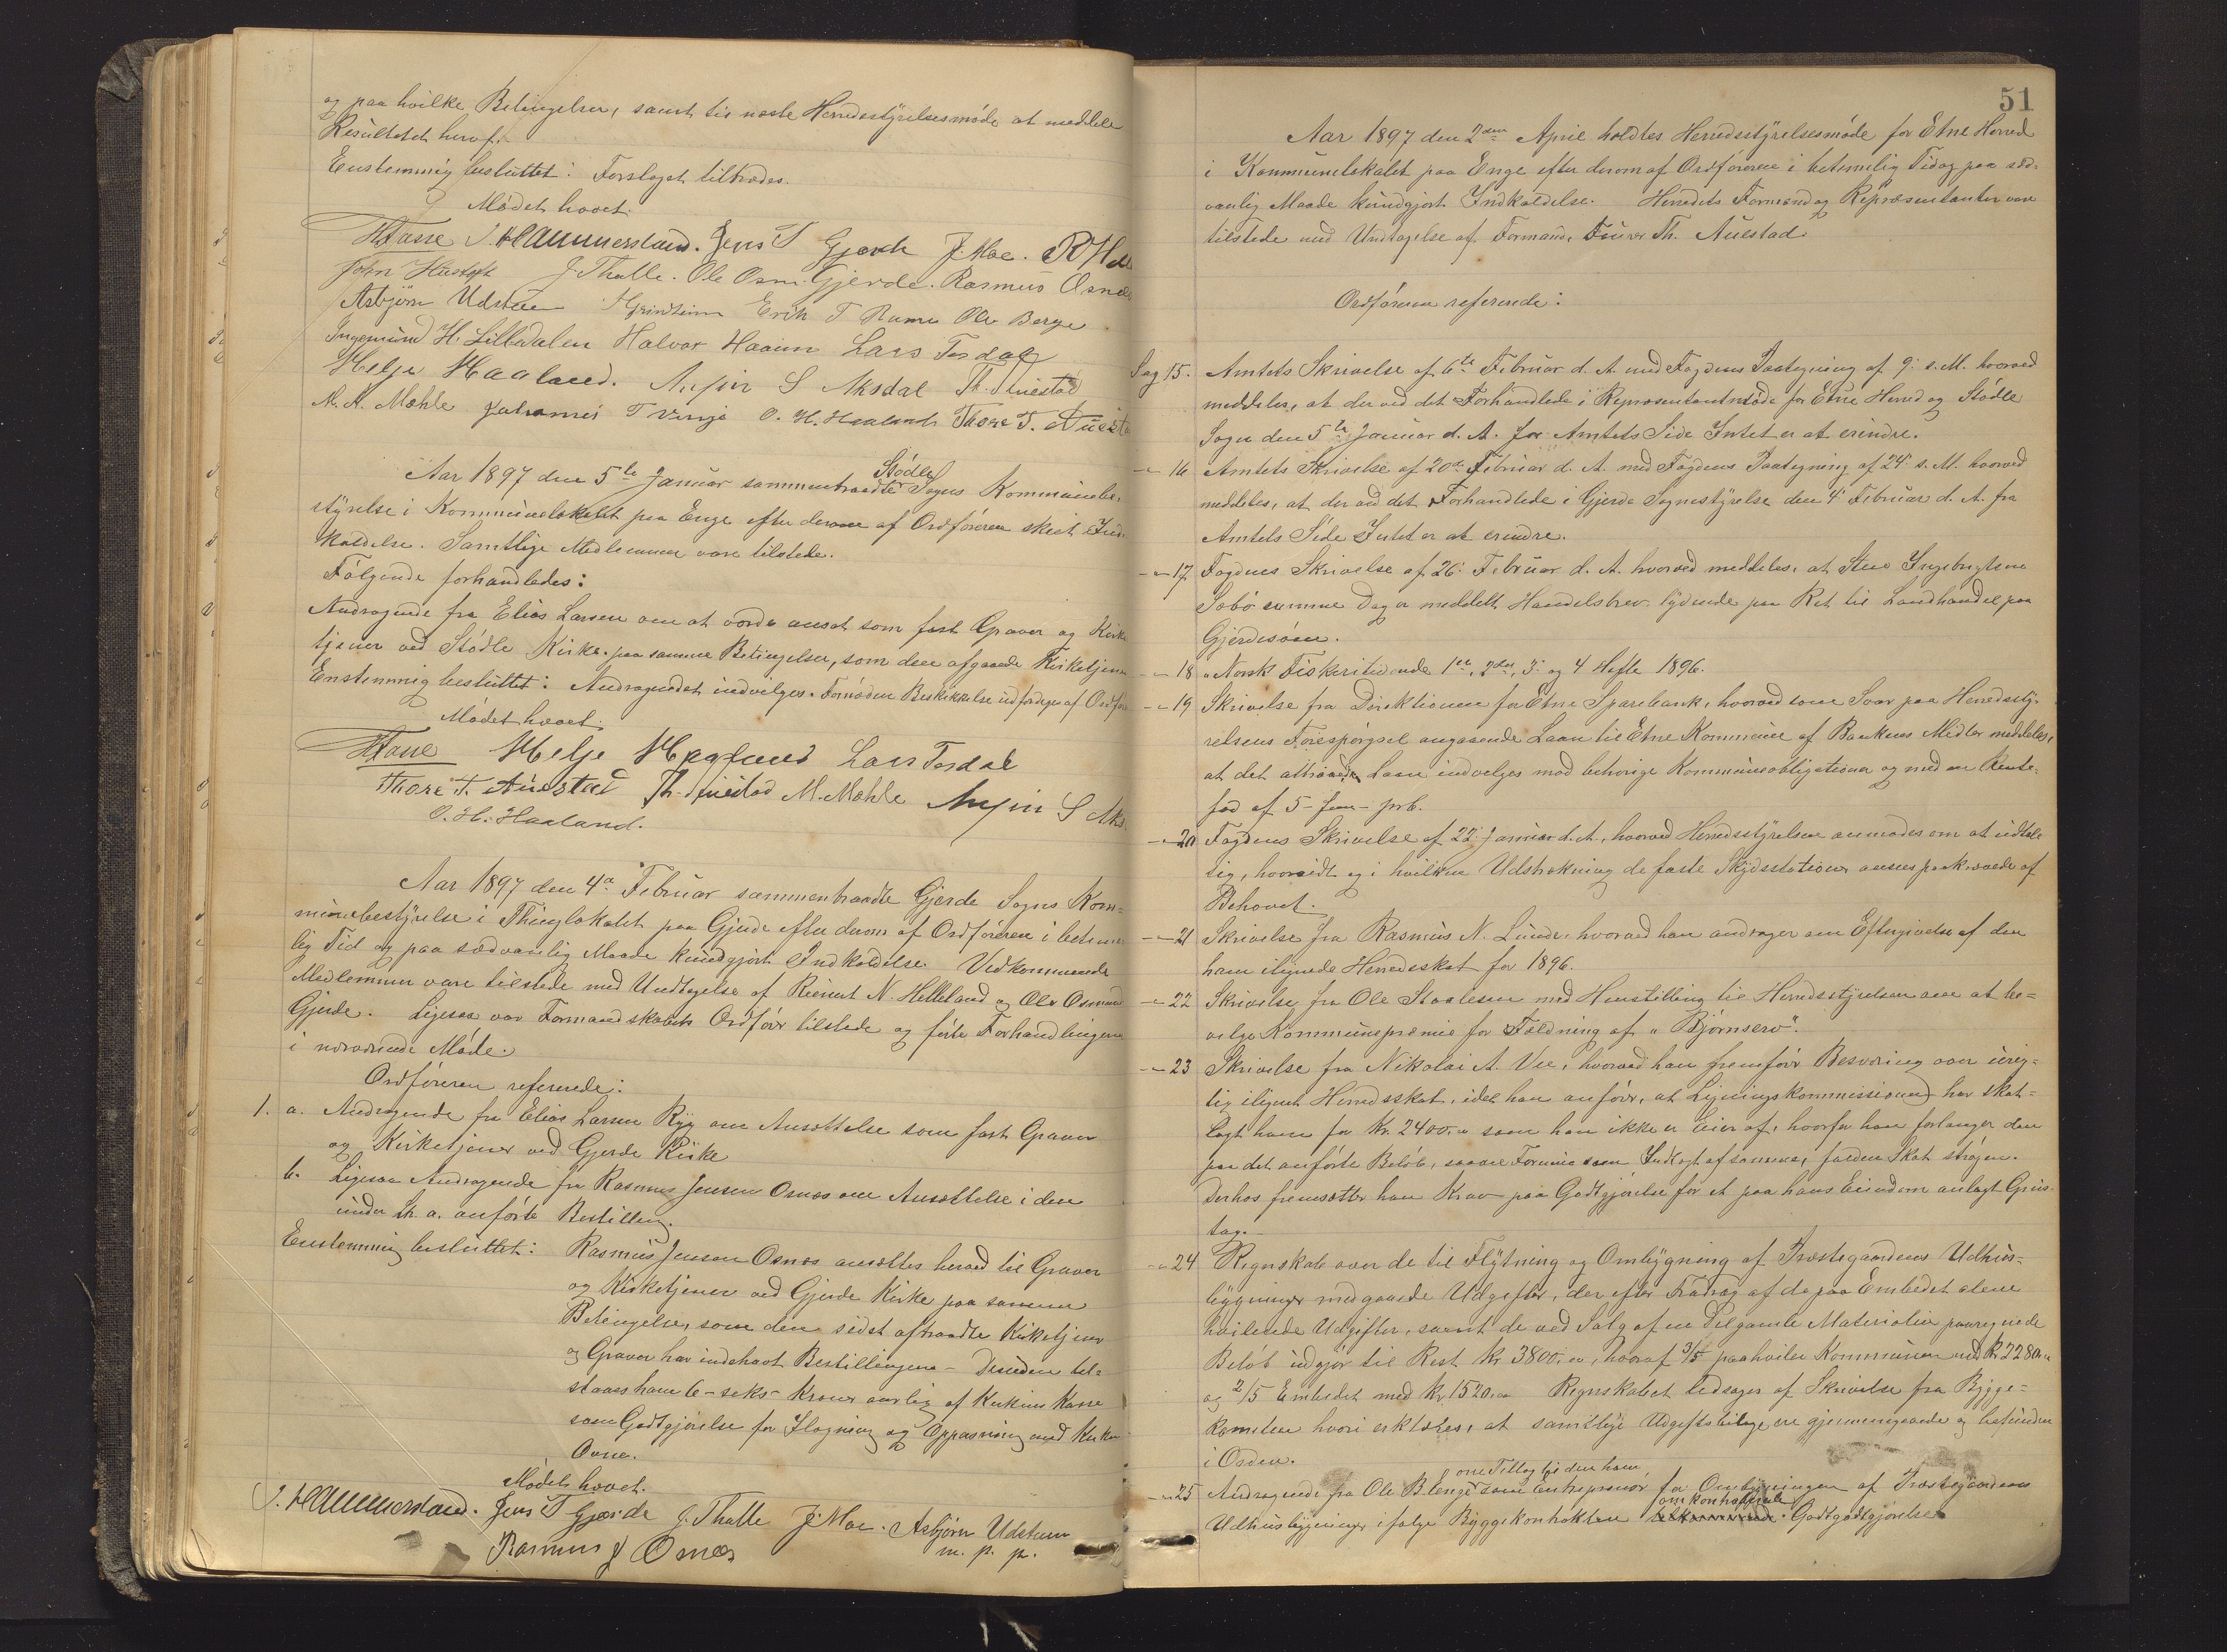 og paa hvilke Betingelser, samt til næste Herredsstyrelsesmøde at meddele
Resultatet heraf.
Enstemmig besluttet: Forslaget tiltrædes.
Mødet hævet.
HTasse J. Hammersland. Jens T Gjerde J. Moe.
J. Thulle. Ole Osm. Gjerde. Rasmus Osnes
Asbjørn Udsteen Grindheim Erik T Rame Ole Berge
Ingemund H. Lilledalen Halvor Haaim Lars Tesdal
Helje Haaland. Anfin S Aksdal Th. Auestad
A. A. Mæhle Johannes T Vinje O. H. Haaland Thore T. Auesta
Aar 1897 den 5te Januar sammentraadte Stødle Sogns Kommunebe-
styrelse i Kommunelokalet paa Enge efter derom af Ordføreren skeet Ind-
kaldelse. Samtlige Medlemmer vare tilstede.
Følgende forhandledes:
Andragende fra Elias Larsen om at vorde ansat som fast Graver og Kirke
tjener ved Stødle Kirke paa samme Betingelser, som den afgaaede Kirketjener
Enstemmig besluttet: Andragendet indvilges. Fornøden Beskikkelse udfærdiges af Ordfø
Mødet hævet.
HTasse Helje Haaland Lars Tesdal
Thore T. Auestad Th. Auestad M. Mæhle Anfin S Aks
O. H. Haaland.
Aar 1897 den 4de Februar sammentraadte Gjerde Sogns Kom-
munebestyrelse i Thinglokalet paa Gjerde efter derom af Ordføreren i betime
lig Tid og paa sædvanlig Maade kundgjort Indkaldelse. Vedkommende
Medlemmer vare tilstede med Undtagelse af Reinert N. Helleland og Ole Osmund
Gjerde. Ligesaa var Formandskabets Ordfører tilstede og førte Forhandlingerne
i nærværende Møde.
Ordføreren refererede:
1. a. Andragende fra Elias Larsen Ryg om Ansættelse som fast Graver
og Kirketjener ved Gjerde Kirke
b. Ligesaa Andragende fra Rasmus Jensen Osnes om Ansættelse i den
under Lit. a. anførte Bestilling.
Enstemmig besluttet: Rasmus Jensen Osnes ansættes herved til Graver
og Kirketjener ved Gjerde Kirke paa samme
Betingelser, som den sidst aftraadte Kirketjener
og Graver har indehavt Bestillingerne – Desuden til-
staaes ham 6 – seks – Kroner aarlig af Kirkens Kasse
som Godtgjørelse for Ilægning og Oppasning med Kirkens
Ovne.
Mødet hævet.
J. Hammersland. Jens T Gjerde J. Thulle J. Moe. Asbjørn Udsteen
Rasmus J Osnes m. p. p.
51
Aar 1897 den 2den April holdtes Herredsstyrelsesmøde for Etne Herred
i Kommunelokalet paa Enge efter derom af Ordføreren i betimelig Tid og paa sæd-
vanlig Maade kundgjort Indkaldelse. Herredets Formænd og Repræsentanter vare
tilstede med Undtagelse af Formand, Th. Auestad
Ordføreren refererede:
Sag 15. Amtets Skrivelse af 6te Februar d. A. med Fogdens Paategning af 9. s. M. hvorved
meddeles, at der ved det Forhandlede i Repræsentantmøde for Etne Herred og Stødle
Sogn den 5te Januar d. A. fra Amtets Side Intet er at erindre.
-"- 16 Amtets Skrivelse af 20de Februar d. A. med Fogdens Paategning af 24. s. M. hvorved
meddeles, at der ved det Forhandlede i Gjerde Sognestyrelse den 4. Februar d. A. fra
Amtets Side Intet er at erindre.
-"- 17 Fogdens Skrivelse af 26. Februar d. A. hvorved meddeles, at Sten Ingebrigtsen
Sæbø samme Dag er meddelt Handelsbrev lydende paa Ret til Landhandel paa
Gjerdesøen.
-"- 18 "Norsk Fiskeritidende 1ste, 2det, 3. og 4 Hefte 1896.
-"- 19 Skrivelse fra Direktionen for Etne Sparebank, hvorved som Svar paa Herredssty-
relsens Forespørgsel angaaende Laan til Etne Kommune af Bankens Midler meddeles,
at det attraaede Laan indvilges mod behørige Kommuneobligationer og med en Rente-
fod af 5 – fem – pct.
-"- 20 Fogdens Skrivelse af 22. Januar d. A., hvorved Herredsstyrelsen anmodes om at udtale
sig, hvorvidt og i hvilken Udstrækning de faste Skydsstationer ansees paakrævede af
Behovet.
-"- 21 Skrivelse fra Rasmus N. Lunde, hvorved han andrager om Eftergivelse af den
ham ilignede Herredsskat for 1896.
-"- 22 Skrivelse fra Ole Staalesen med Henstilling til Herredsstyrelsen om at be-
vilge Kommunepræmie for Fældning af "Bjørnserv".
-"- 23 Skrivelse fra Nikolai A. Vee, hvorved han fremfører Besværing over urig-
tig ilignet Herredsskat, idet han anfører, at Ligningskommissionen har skat-
lagt ham for Kr. 2400.00 som han ikke er Eier af, hvorfor han forlanger den
paa det anførte Beløb, saavel Formue som Indtægt af samme, faldne Skat strøgen.
Derhos fremsætter han Krav paa Godtgjørelse for et paa hans Eiendom anlagt Grus-
tag.
-"- 24 Regnskab over de til Flytning og Ombygning af Præstegaardens Udhus-
bygninger medgaaede Udgifter, der efter Fradrag af de paa Embedet alene
hvilende Udgifter, samt de ved Salg af en Del gamle Materialier paaregnede
Beløb udgjør til Rest Kr 3800.00, hvoraf 3/5 paahviler Kommunen med Kr. 2280.00
og 2/5 Embedet med Kr. 1520.00 Regnskabet ledsages af Skrivelse fra Bygge-
komiteen hvori erklæres, at samtlige Udgiftsbilage ere gjennemgaaede og befundne
i Orden.
-"- 25 Andragende fra Ole B. Enge om Tillæg til den ham som Entreprenør for Ombygningen af Præstegaardens
Udhusbygninger ifølge Byggekontrakten omkontraherede Godtgjørelse